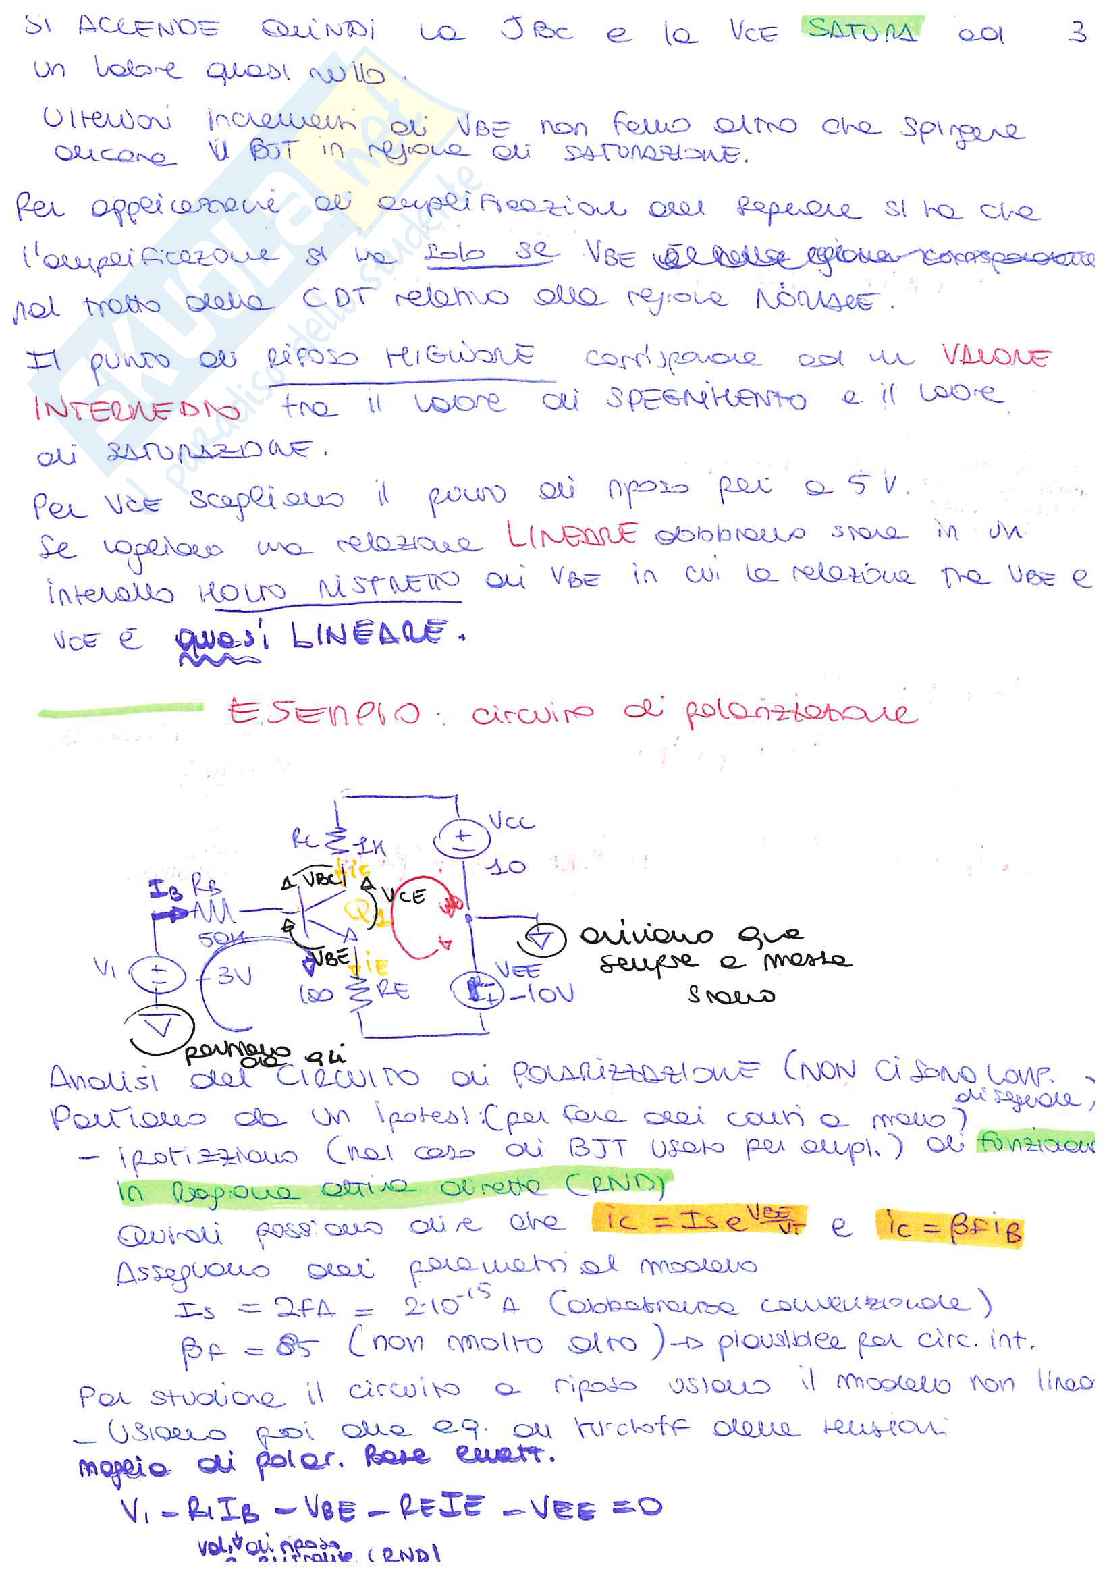 SI ACCENDE QUINDI LA JBC e la VCE SATURA ad 3
un valore quasi nullo.
Ulteriori incrementi di VBE non fanno altro che spingere
ancora il BJT in regione di SATURAZIONE.
Per applicazioni di amplificazioni del segnale si ha che
l'amplificazione si ha solo se VBE è nella regione corrispondente
nel tratto della CDT relativo alla regione NORMALE.
Il punto di RIPOSO MIGLIORE corrisponde ad un VALORE
INTERMEDIO tra il valore di SPEGNIMENTO e il valore
di SATURAZIONE.
Per VCE scegliamo il punto di riposo pari a 5 V.
Se vogliamo una relazione LINEARE dobbiamo stare in un
intervallo MOLTO RISTRETTO di VBE in cui la relazione tra VBE e
VCE è quasi LINEARE.
ESEMPIO: circuito di polarizzazione
VCC
RC 1K
10
iC
VBC
VCE
IB RB
50K
Q1
VBE
iE
V1
3V
100 RE
VEE
-10V
arriviamo qua
sempre a massa
siamo
partiamo
da qui
Analisi del CIRCUITO di POLARIZZAZIONE (NON CI SONO COMP.
di segnale)
Partiamo da un ipotesi: (per fare dei conti a mano)
- ipotizziamo (nel caso di BJT usato per ampl.) di funzionare
in Regione attiva diretta (RND)
Quindi possiamo dire che ic = Is e VBE/VT e ic = βF iB
Assegnamo dei parametri al modello
Is = 2fA = 2·10^-15 A (abbastanza convenzionale)
βF = 85 (non molto alto) → plausibile per circ. int.
Per studiare il circuito a riposo usiamo il modello non linea
- Usiamo poi alle eq. di Kirchoff delle tensioni
maglia di polar. Base emett.
V1 - R1 IB - VBE - RE IE - VEE = 0
val. di riposo
(RND)